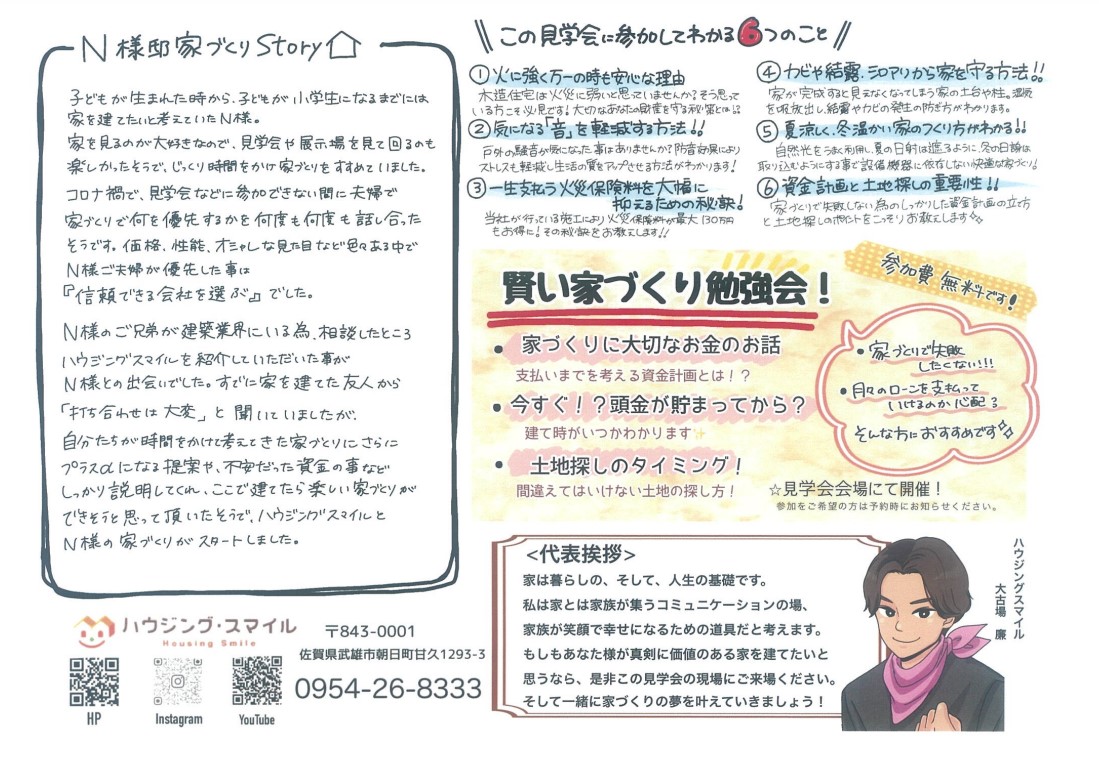 N様邸家づくりStory
子どもが生まれた時から、子どもが小学生になるまでには
家を建てたいと考えていたN様。
家を見るのが大好きなので、見学会や展示場を見て回るのも
楽しかったそうで、じっくり時間をかけ家づくりをすすめていました。
コロナ禍で、見学会などに参加できない間に夫婦で
家づくりで何を優先するかを何度も何度も話し合った
そうです。価格、性能、オシャレな見た目など色々ある中で
N様ご夫婦が優先した事は
『信頼できる会社を選ぶ』でした。
N様のご兄弟が建築業界にいる為、相談したところ
ハウジングスマイルを紹介していただいた事が
N様との出会いでした。すでに家を建てた友人から
「打ち合わせは大変」と聞いていましたが、
自分たちが時間をかけて考えてきた家づくりにさらに
プラスαになる提案や、不安だった資金の事など
しっかり説明してくれ、ここで建てたら楽しい家づくりが
できそうと思って頂いたそうで、ハウジングスマイルと
N様の家づくりがスタートしました。
ハウジング・スマイル
Housing Smile
HP
Instagram
YouTube
〒843-0001
佐賀県武雄市朝日町甘久1293-3
0954-26-8333
この見学会に参加してわかる6つのこと
①火に強く万一の時も安心な理由
木造住宅は火災に弱いと思っていませんか？そう思って
いる方こそ必見です！大切なあなたの財産を守る秘策とは！？
②気になる「音」を軽減する方法!!
戸外の騒音が気になった事はありませんか？防音効果により
ストレスも軽減し生活の質をアップさせる方法がわかります！
③一生支払う火災保険料を大幅に
抑えるための秘訣！
当社が行っている施工により火災保険料が最大130万円
もお得に！その秘訣をお教えします!!
④カビや結露、シロアリから家を守る方法!!
家が完成すると見えなくなってしまう家の土台や柱。湿気
を吸放出し、結露やカビの発生の防ぎ方がわかります。
⑤夏涼しく、冬温かい家のつくり方がわかる!!
自然光をうまく利用し、夏の日射は遮るように、冬の日射は
取り込むようにする事で設備機器に依存しない快適な家づくり！
⑥資金計画と土地探しの重要性!!
家づくりで失敗しない為のしっかりした資金計画の立て方
と土地探しのポイントをこっそりお教えします
賢い家づくり勉強会！
参加費無料です！
● 家づくりに大切なお金のお話
支払いまでを考える資金計画とは！？
● 今すぐ！？頭金が貯まってから？
建て時がいつかわかります
● 土地探しのタイミング！
間違えてはいけない土地の探し方！
・家づくりで失敗
したくない!!!
・月々のローンを支払って
いけるのか心配？
そんな方におすすめです
☆見学会会場にて開催！
参加をご希望の方は予約時にお知らせください。
<代表挨拶>
家は暮らしの、そして、人生の基礎です。
私は家とは家族が集うコミュニケーションの場、
家族が笑顔で幸せになるための道具だと考えます。
もしもあなた様が真剣に価値のある家を建てたいと
思うなら、是非この見学会の現場にご来場ください。
そして一緒に家づくりの夢を叶えていきましょう！
ハウジングスマイル
大古場 廉